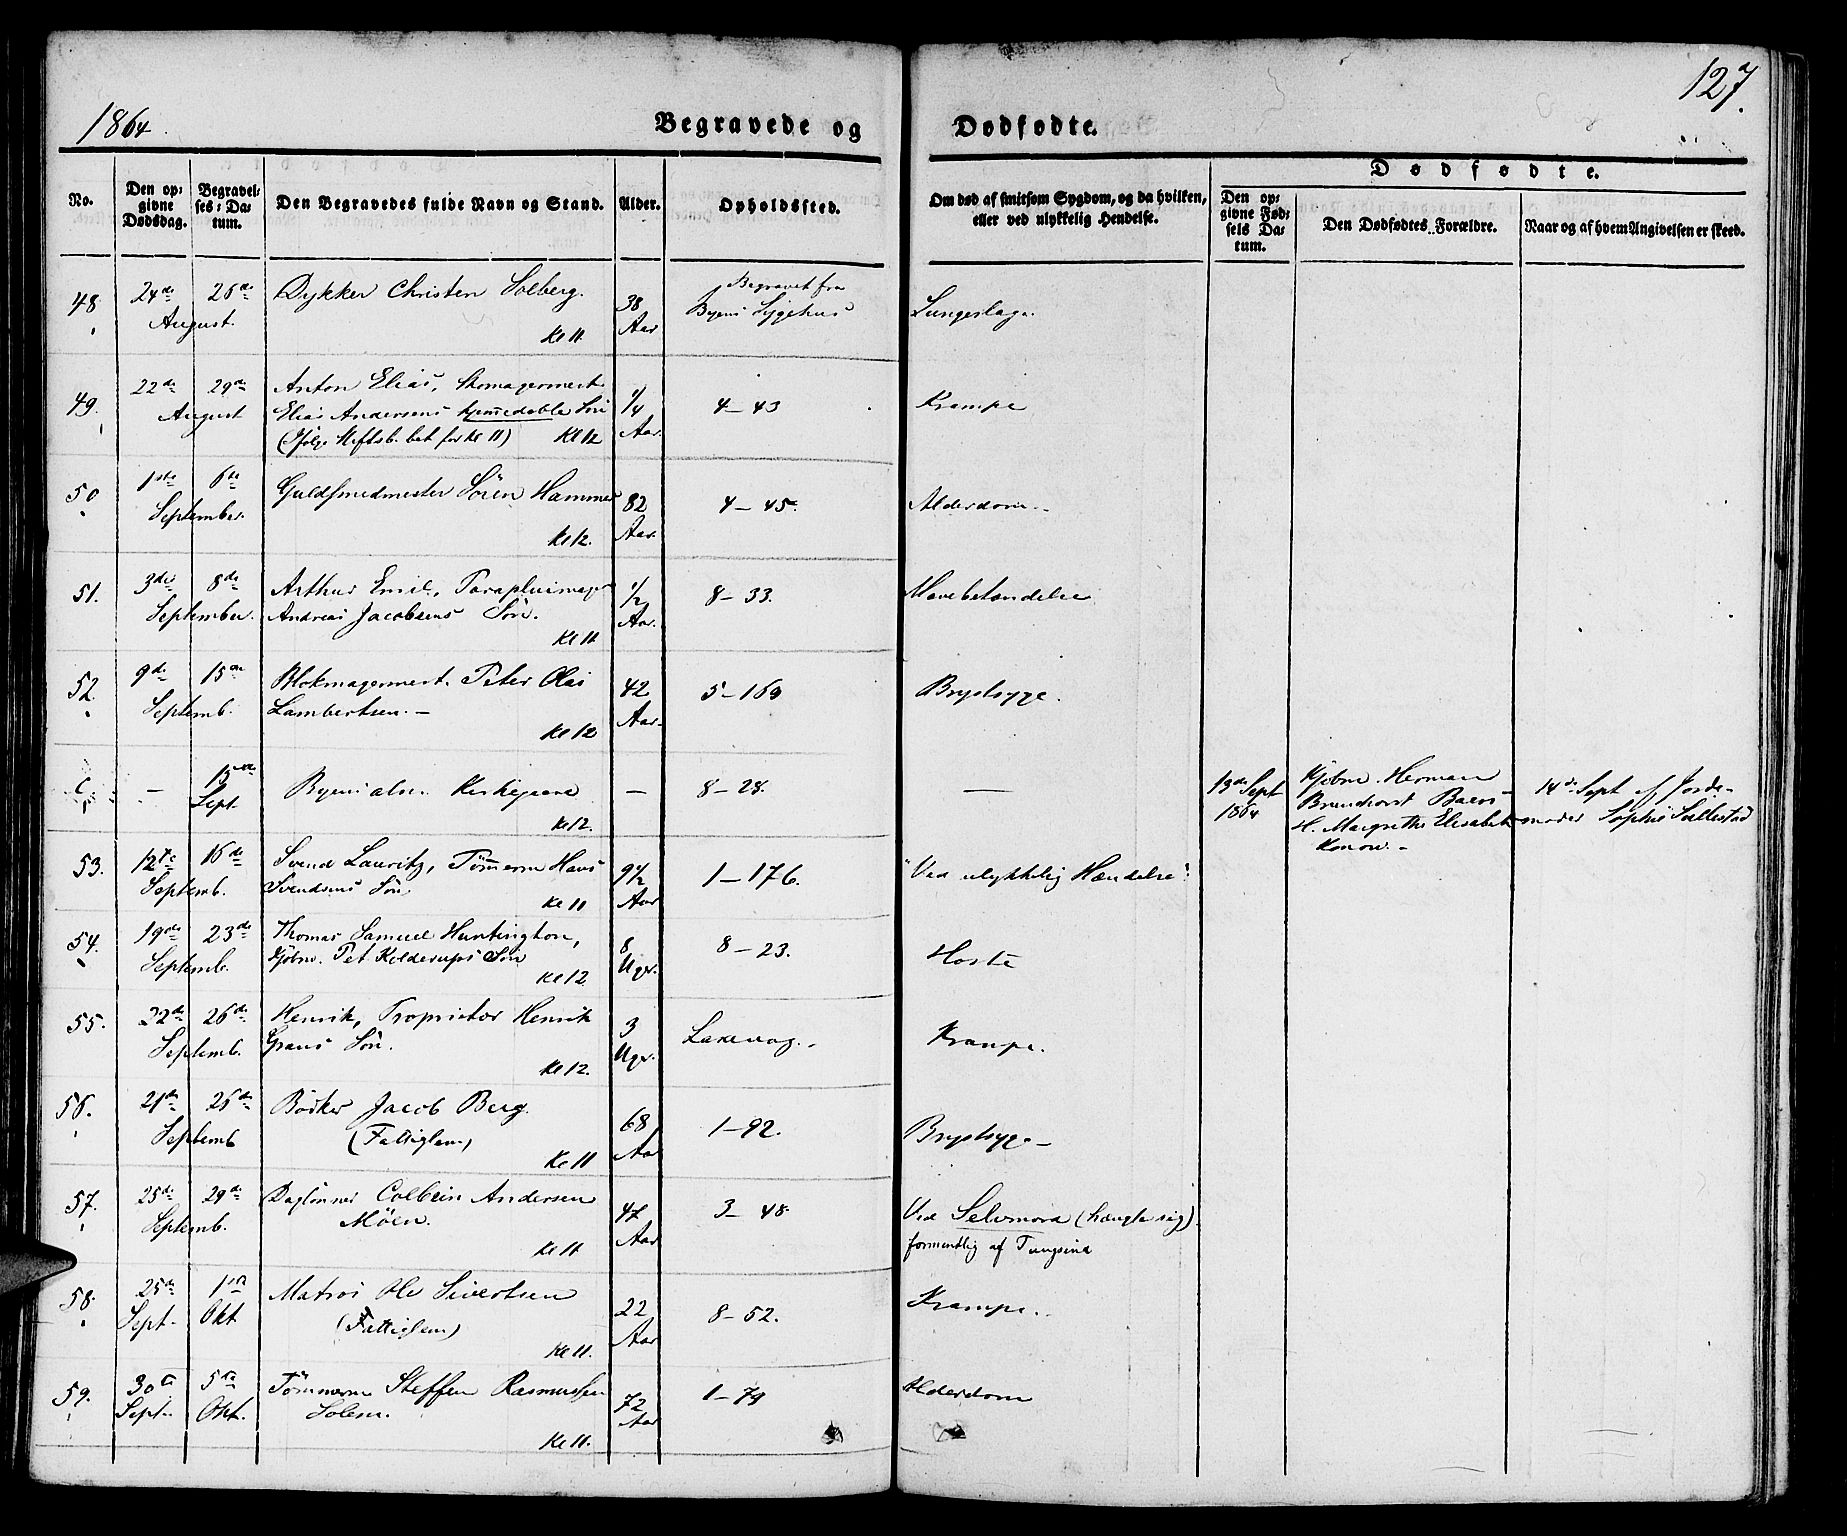 1864
127.
Begravede og Dødfødte.
No.
Den op=
givne
Dødsdag.
Begravel=
ses=Da=
tum.
Den Begravedes fulde Navn og Stand.
Alder.
Opholdssted.
Om død af smitsom Sygdom, og da hvilken,
eller ved ulykkelig Hendelse.
Dødfødte.
Den op=
givne Fød=
sels Da=
tum.
Den Dødfødtes Forældre.
Naar og af hvem Angivelsen er skeed.
48. 24de 26de Dykker Christen Solberg. 38 Begravet fra
August. Kl 11. Aar Byens Sygehus Lungeslag.
49. 22de 29de Anton Elias, Skomagermest.
August Elias Andersens hjemmedøbte Søn 1/4 4–43 Krampe
(Ifølge bet for kl 11) Kl 12 Aar.
50. 1ste 6te Guldsmedmester Sören Hammer 82 4–45. Alderdom.
September. Kl 12. Aar.
51. 3die 8de Arthur Emil, Parapluimager 1/2 8–33. Mavebetændelse
September. Andreas Jacobsens Sön. Aar.
Kl 11.
52. 9de 15de Blokmagermest. Peter Olai 42 5–169 Brystsyge.
Septemb. Lambertsen.– Aar.
Kl 12
C. – 15de Byens alm. Kirkegaard – 8–28. –
Sept Kl 12.
13de Sept
1864
Kjøbm. Herman
Brunchorst
H. Margrethe Elisabet
Konow.–
14de Sept af Jorde-
moder Sophie
53. 12te 16de Svend Lauritz, Tömmerm Hans 9½ 1–176. "Ved ulykkelig Hændelse".
Septemb. Svendsens Sön Kl 11 Aar
54. 19de 23de Thomas Samuel Huntington, 8 8–23. Hoste
Septemb. Kjöbm. Pet Kolderups Sön Uger.
Kl 12
55. 22de 26de Henrik, Proprietær Henrik 3 Laxevaag.– Krampe.
Septemb. Grans Sön. Uger.
Kl 12.
56. 21de 26de Bödker Jacob Berg. 68 1–92. Brystsyge–
Septemb (Fattiglem) Kl 11 Aar
57. 25de 29de Daglönner Colbein Andersen 47 3–48. Ved Selvmord (hængte sig).
Septemb. Möen. Kl 11. Aar formentlig af Tungsind
58. 25de 1ste Matros Ole Sivertsen 22 8–52. Krampe.
Sept. Okt (Fattiglem) Kl 11. Aar
59. 30te 5te Tömmerm Steffen Rasmussen 72 1–79 Alderdom
Sept. Okt. Solem. Kl 11. Aar